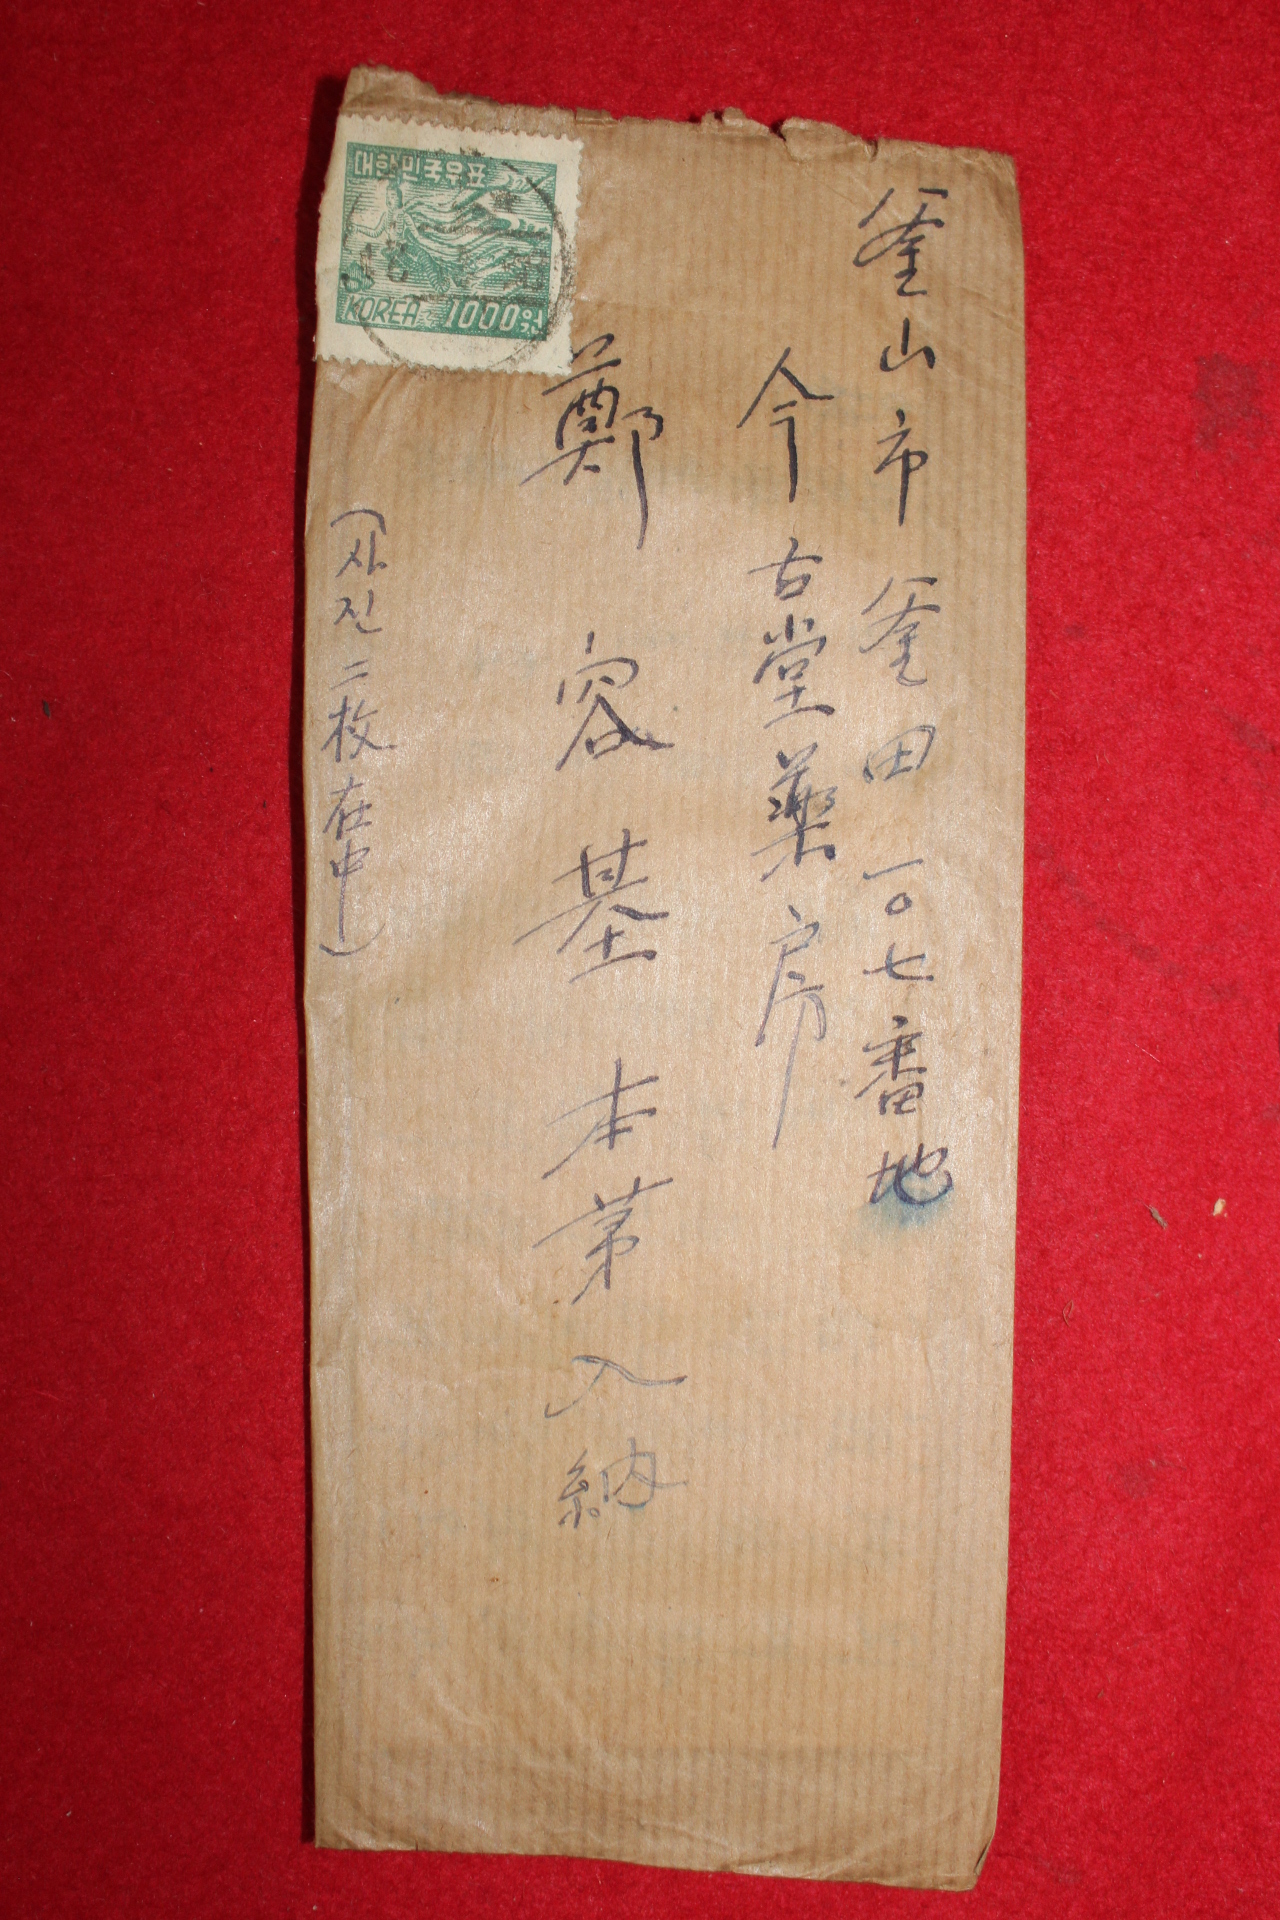 釜山市 釜田 一〇七番地
今古堂藥房
鄭 容基 本第 入納
(사진 二枚在中)
대한민국우표
KOREA 1000원